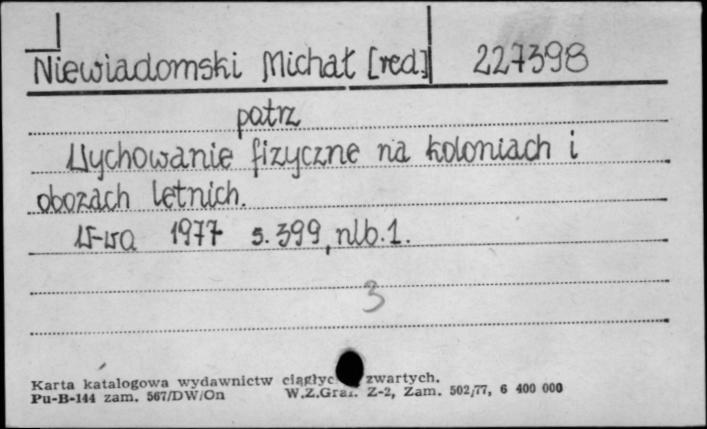 Niewiadomski Michał [red] 227398
patrz
Wychowanie fizyczne na koloniach i
obozach letnich.
W-wa 1977 s. 399, nlb. 1.
3
Karta katalogowa wydawnictw zwartych.
Pu-B-144 zam. 567/DW/On W.Z.Graf. Z-2, Zam. 502/77, 6 400 000